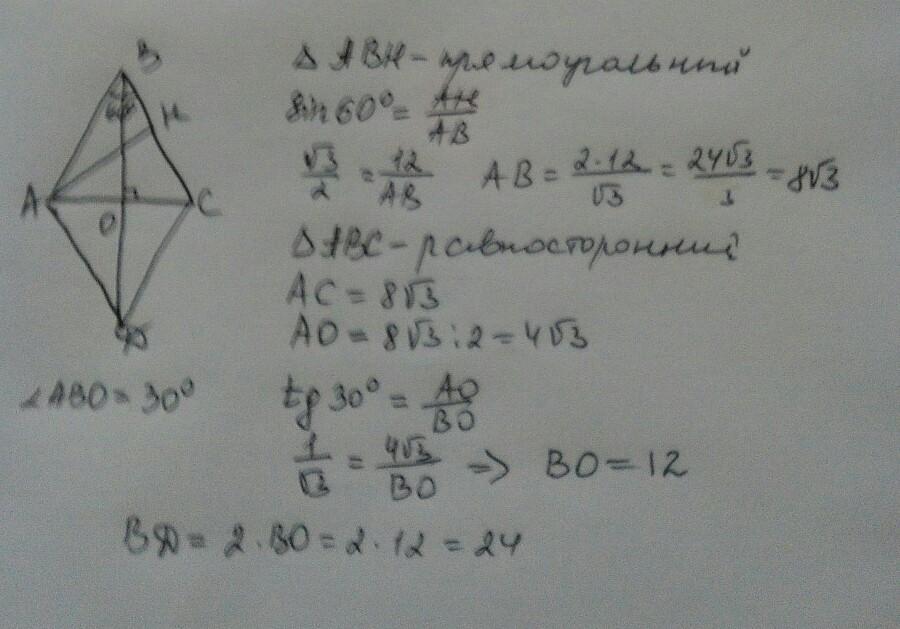 B
60°
H
A
O
C
Д
∆ ABH - прямоугольный
sin 60° = AH/AB
√3/2 = 12/AB AB = 2·12/√3 = 24√3/3 = 8√3
∆ ABC - равносторонний
AC = 8√3
AO = 8√3 : 2 = 4√3
∠ABO = 30° tg 30° = AO/BO
1/√3 = 4√3/BO => BO = 12
BД = 2·BO = 2·12 = 24